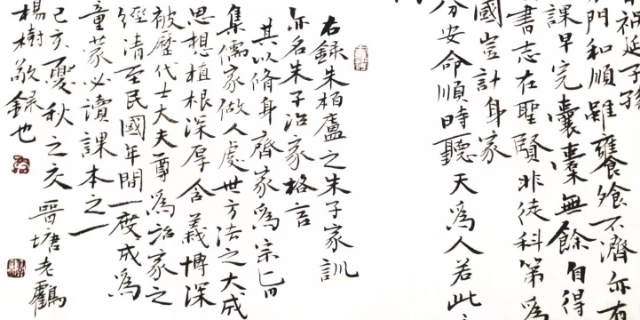 禍延子孫
門和順雖饔飧不濟亦有
課早完囊橐無餘自得
書志在聖賢非徒科第為
國豈計身家
分安命順時聽天為人若此
右錄朱柏廬之朱子家訓
亦名朱子治家格言
其以脩身齊家為宗旨
集儒家做人處世方法之大成
思想植根深厚含義博深
被歷代士大夫尊為治家之
經清至民國年間一度成為
童蒙必讀課本之一
己亥夏秋之交 晉塘老鸛
楊樹敬錄也